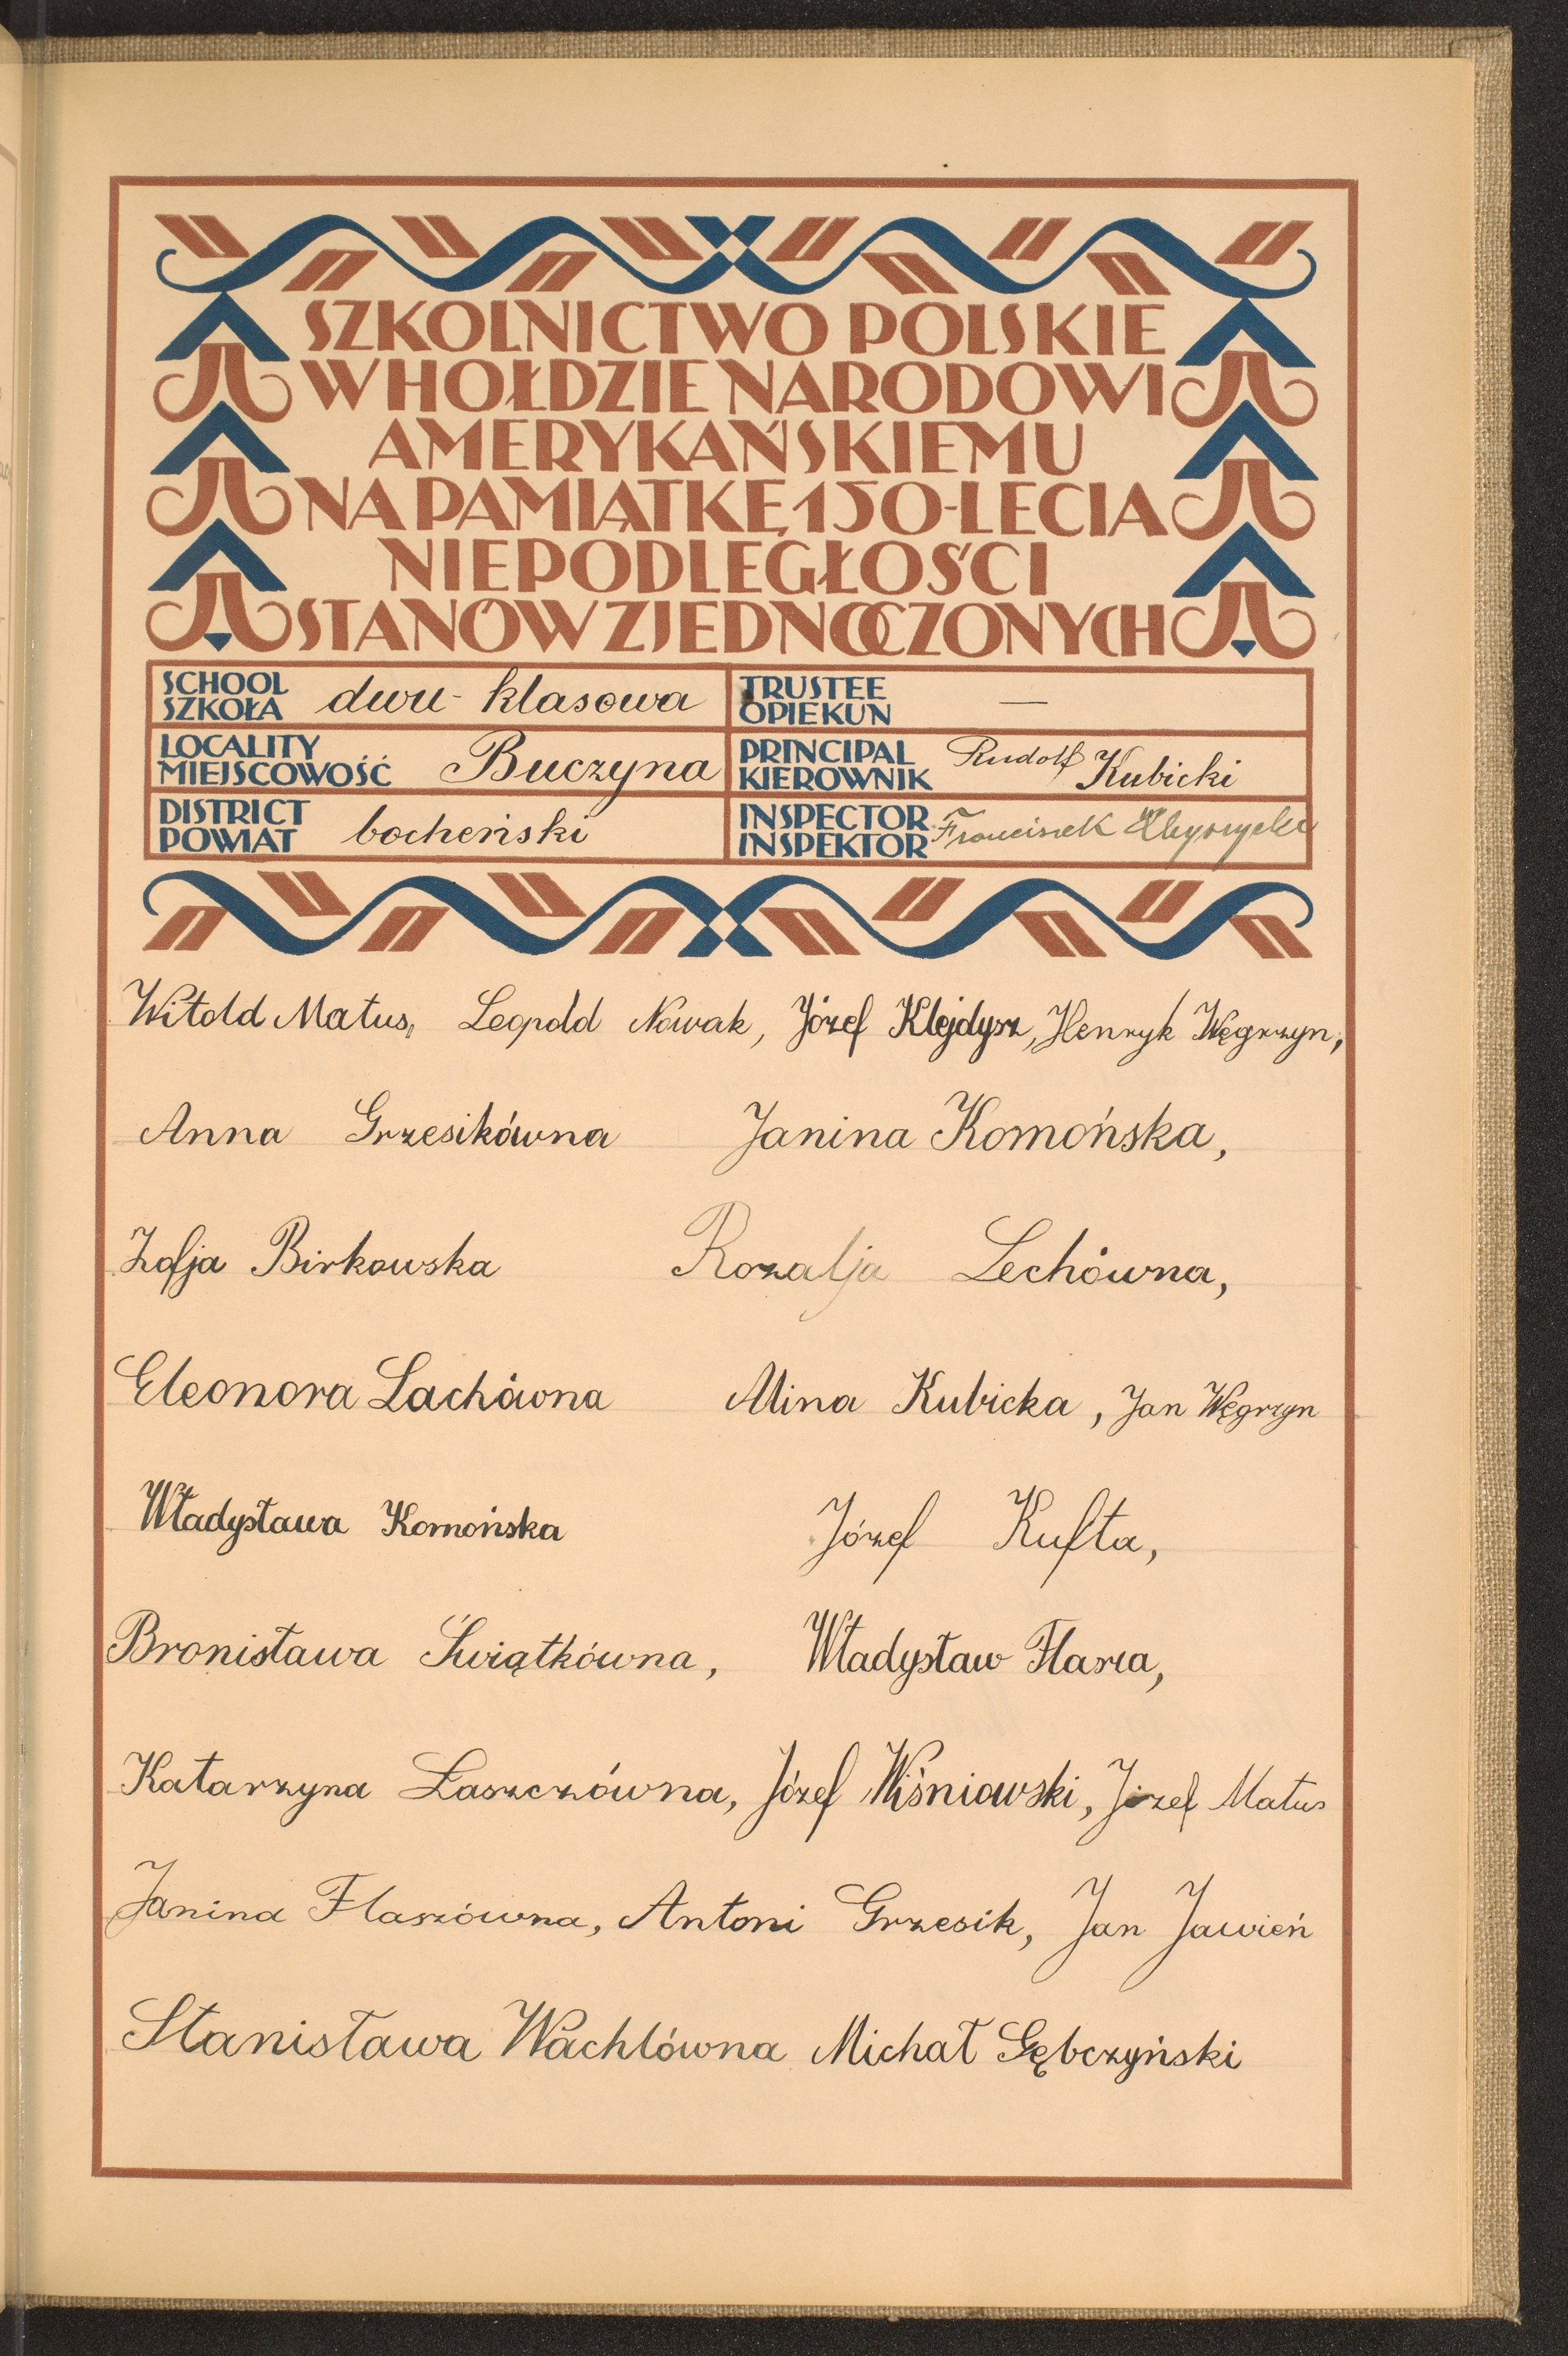 SZKOLNICTWO POLSKIE
W HOŁDZIE NARODOWI
AMERYKAŃSKIEMU
NA PAMIĄTKĘ 150-LECIA
NIEPODLEGŁOŚCI
STANÓW ZJEDNOCZONYCH
SCHOOL
SZKOŁA dwu-klasowa
TRUSTEE
OPIEKUN —
LOCALITY
MIEJSCOWOŚĆ Buczyna
PRINCIPAL
KIEROWNIK Rudolf Kubicki
DISTRICT
POWIAT bocheński
INSPECTOR
INSPEKTOR Franciszek
Witold Matus, Leopold Nowak, Józef Klejdysz, Henryk Węgrzyn,
Anna Grzesikówna Janina Komońska,
Zofja Birkowska Rozalja Lechówna,
Eleonora Lachówna Alina Kubicka, Jan Węgrzyn
Władysława Komońska Józef Kufta,
Bronisława Świątkówna, Władysław Flasza,
Katarzyna Łaszczówna, Józef Wiśniowski, Józef Matus
Janina Flaszówna, Antoni Grzesik, Jan Jawień
Stanisława Wachlówna Michał Gębczyński